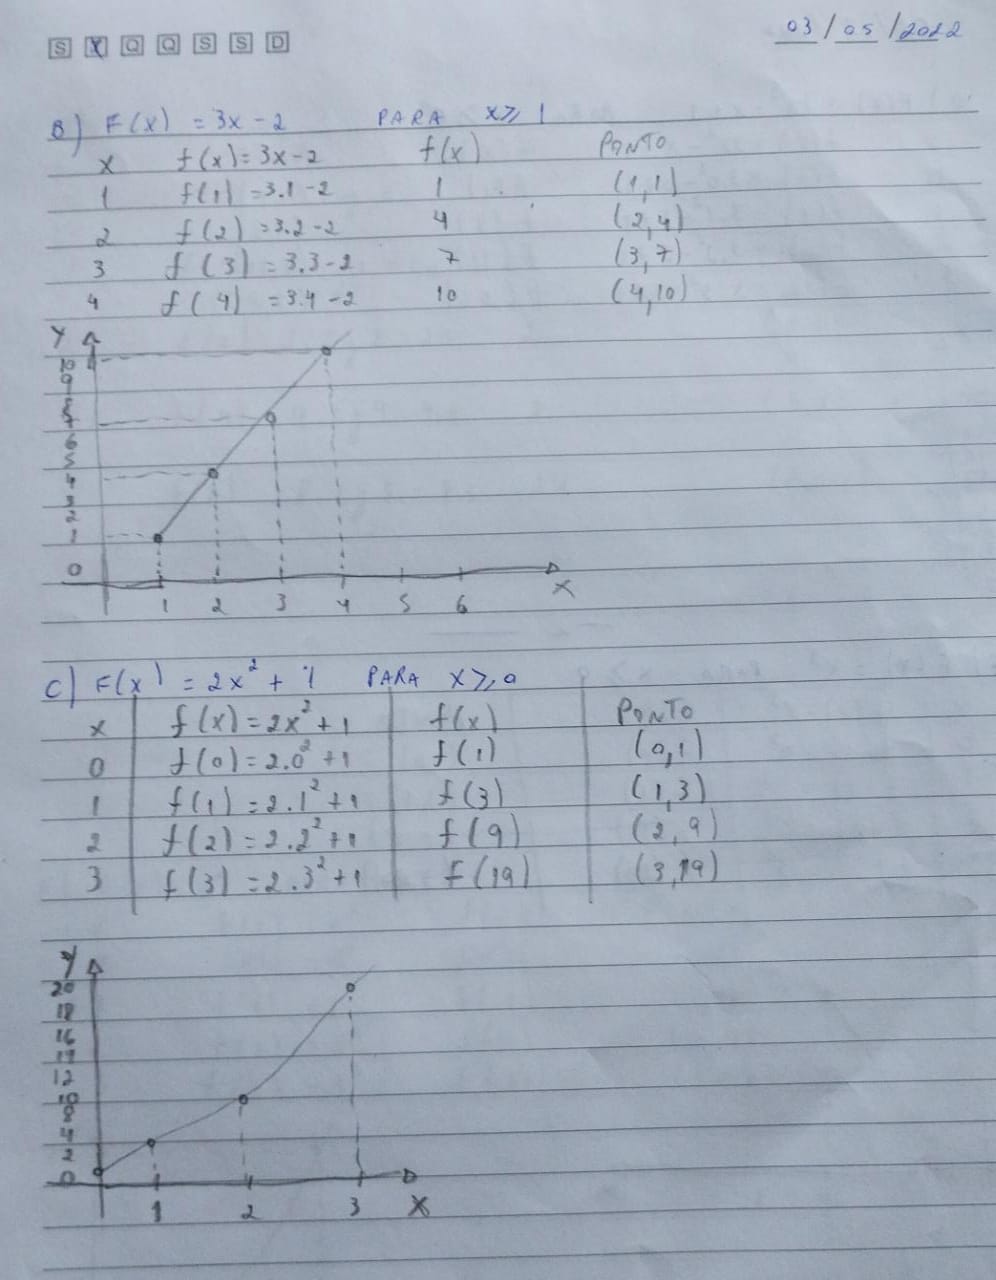 S X Q Q S S D 03/05/2022
B) F(x) = 3x - 2 PARA x ⩾ 1
x f(x) = 3x - 2 f(x) PONTO
1 f(1) = 3.1 - 2 1 (1,1)
2 f(2) = 3.2 - 2 4 (2,4)
3 f(3) = 3.3 - 2 7 (3,7)
4 f(4) = 3.4 - 2 10 (4,10)
Y
10
9
8
7
6
5
4
3
2
1
0
X
1 2 3 4 5 6
C) F(x) = 2x² + 1 PARA x ⩾ 0
x f(x) = 2x² + 1 f(x) PONTO
0 f(0) = 2.0² + 1 f(1) (0,1)
1 f(1) = 2.1² + 1 f(3) (1,3)
2 f(2) = 2.2² + 1 f(9) (2,9)
3 f(3) = 2.3² + 1 f(19) (3,19)
Y
20
18
16
14
12
10
8
4
2
0
1 2 3 X